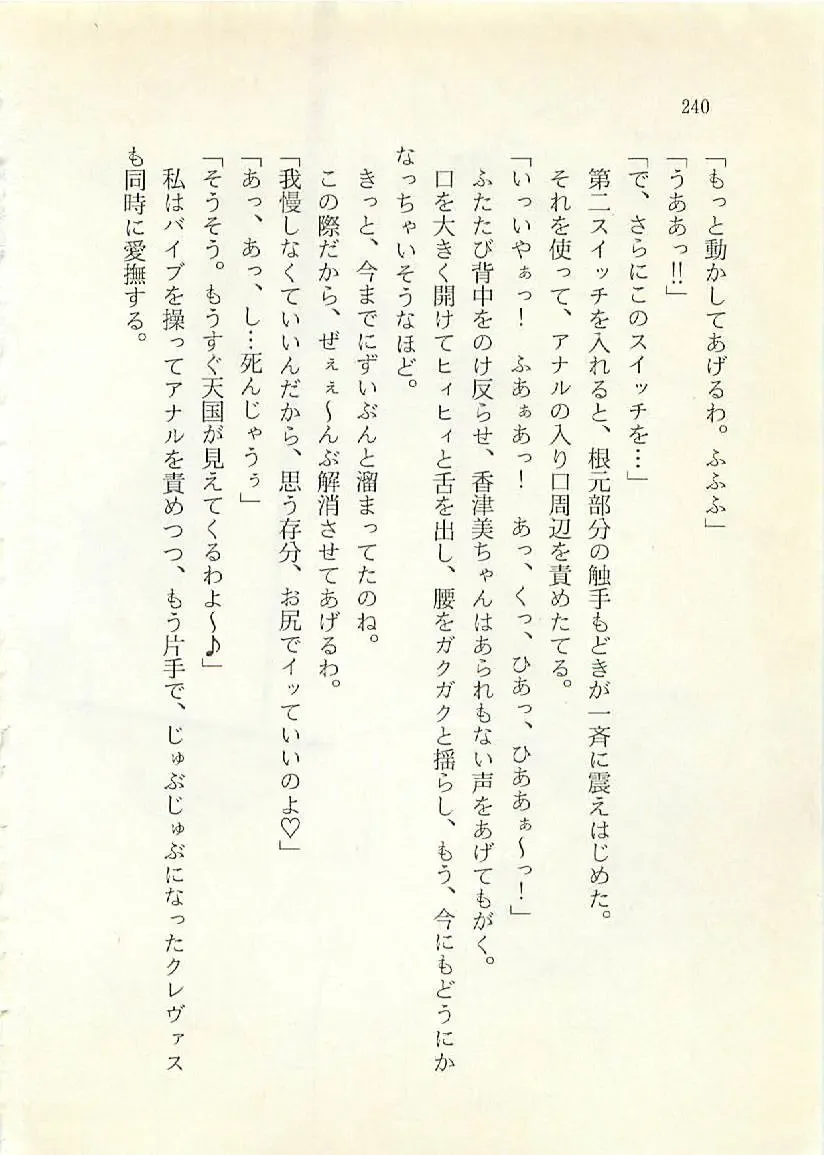 240
「もっと動かしてあげるわ。ふふふ」
「うああっ!!」
「で、さらにこのスイッチを…」
　第二スイッチを入れると、根元部分の触手もどきが一斉に震えはじめた。
　それを使って、アナルの入り口周辺を責めたてる。
「いっいやぁっ！　ふあぁあっ！　あっ、くっ、ひあっ、ひああぁ～っ！」
　ふたたび背中をのけ反らせ、香津美ちゃんはあられもない声をあげてもがく。
　口を大きく開けてヒィヒィと舌を出し、腰をガクガクと揺らし、もう、今にもどうにか
なっちゃいそうなほど。
　きっと、今までにずいぶんと溜まってたのね。
　この際だから、ぜぇぇ～んぶ解消させてあげるわ。
「我慢しなくていいんだから、思う存分、お尻でイッていいのよ♡」
「あっ、あっ、し…死んじゃうぅ」
「そうそう。もうすぐ天国が見えてくるわよ～♪」
　私はバイブを操ってアナルを責めつつ、もう片手で、じゅぶじゅぶになったクレヴァス
も同時に愛撫する。